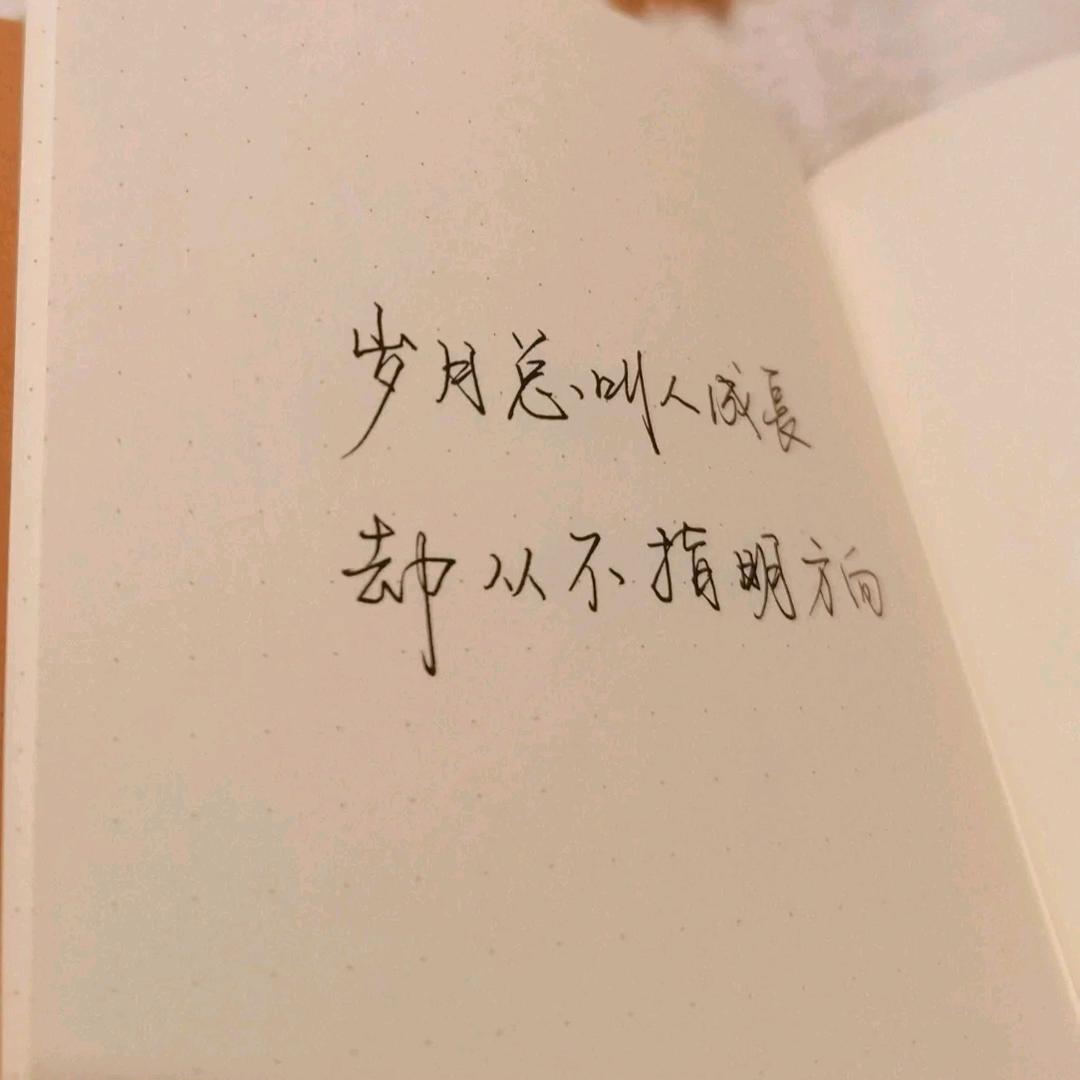 岁月总叫人成長
却从不指明方向